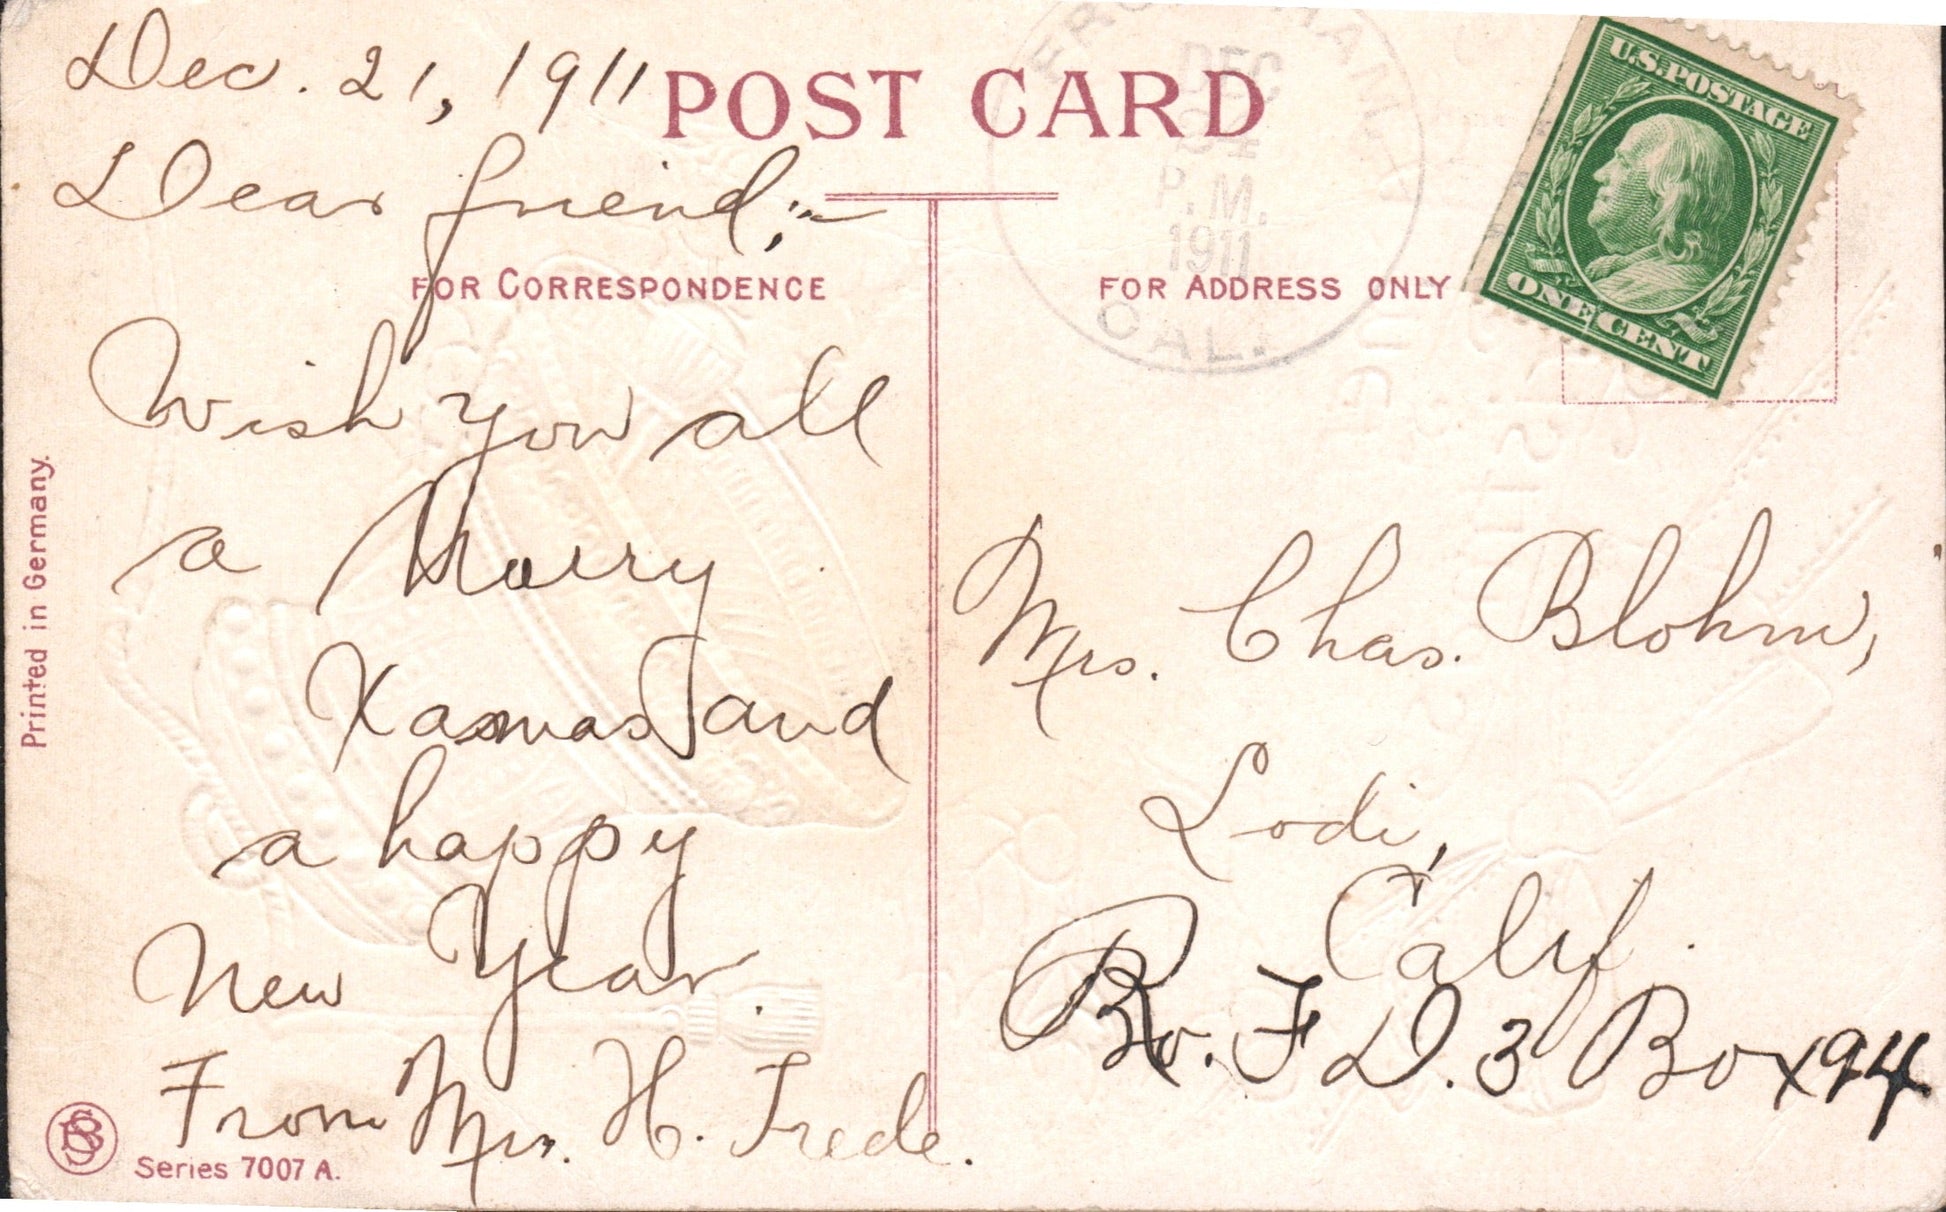 Dec. 21, 1911
POST CARD
Dear friend;-
FOR CORRESPONDENCE
Wish you all
a Merry
Xamas and
a happy
New Year.
From Mrs. H. Frede.
Printed in Germany.
Series 7007 A.
DEC
P.M.
1911
CAL.
FOR ADDRESS ONLY
U.S. POSTAGE
ONE CENT
Mrs. Chas. Blohm,
Lodi,
Calif.
R. F D. 3 Box 94